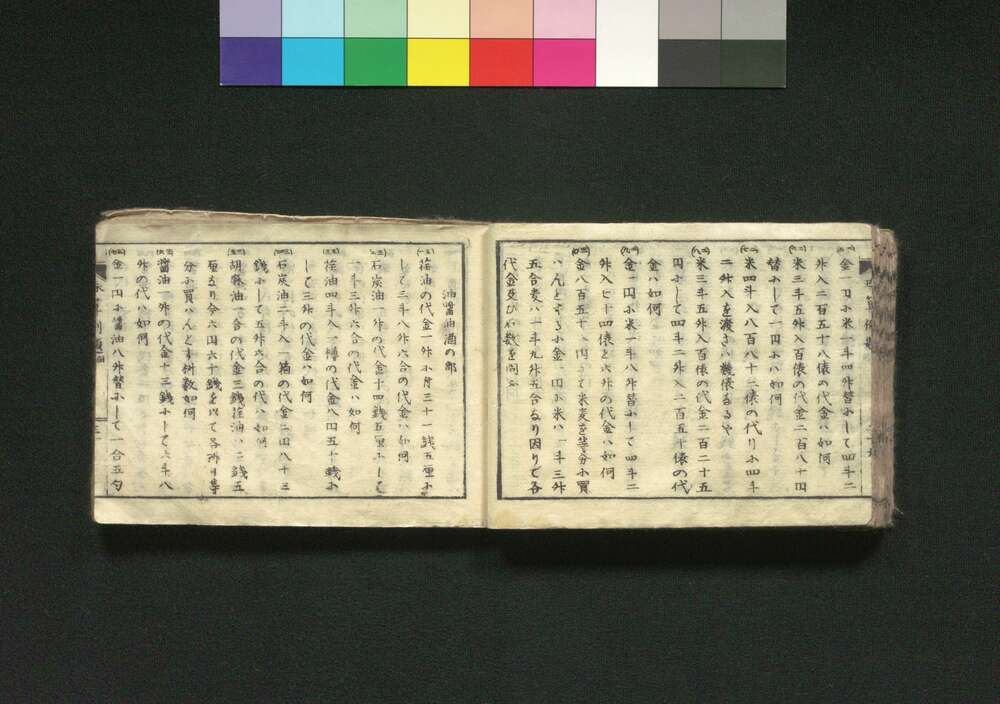 金一円小米一斗四升替小して四斗二
升入二百五十八俵の代金ハ如何
米三斗五升入百俵の代金二百八十四
替小して一円小ハ如何
米四斗入八百八十二俵の代り小四斗
二升入を渡さハ幾俵なるや
米三斗五升入百俵の代金二百二十五
円小して四斗二升入二百五十俵の代
金ハ如何
金一円小米一斗八升替小して四斗二
升入七十四俵と六升の代金ハ如何
金八百五十一円小て米麦を等分小買
ハんとする小金一円小米ハ一斗三升
五合麦ハ一斗九升五合なり因りて各
代金及び石数を問ふ
油醤油酒の部
荏油の代金一升小付三十一銭五厘小
して三斗八升六合の代金ハ如何
石炭油一升の代金十四銭五厘小して
一斗三升六合の代金ハ如何
荏油四斗入一樽の代金八円五十銭小
して三升の代金ハ如何
石炭油二斗入一箱の代金二円八十三
銭小して五升六合の代ハ如何
胡麻油一合の代金三銭荏油ハ二銭五
厘なり今六円六十銭を以て各所用等
分小買ハんとす升数如何
醤油一升の代金十三銭小して六斗八
升の代ハ如何
金一円小醤油八升替小して一合五勺